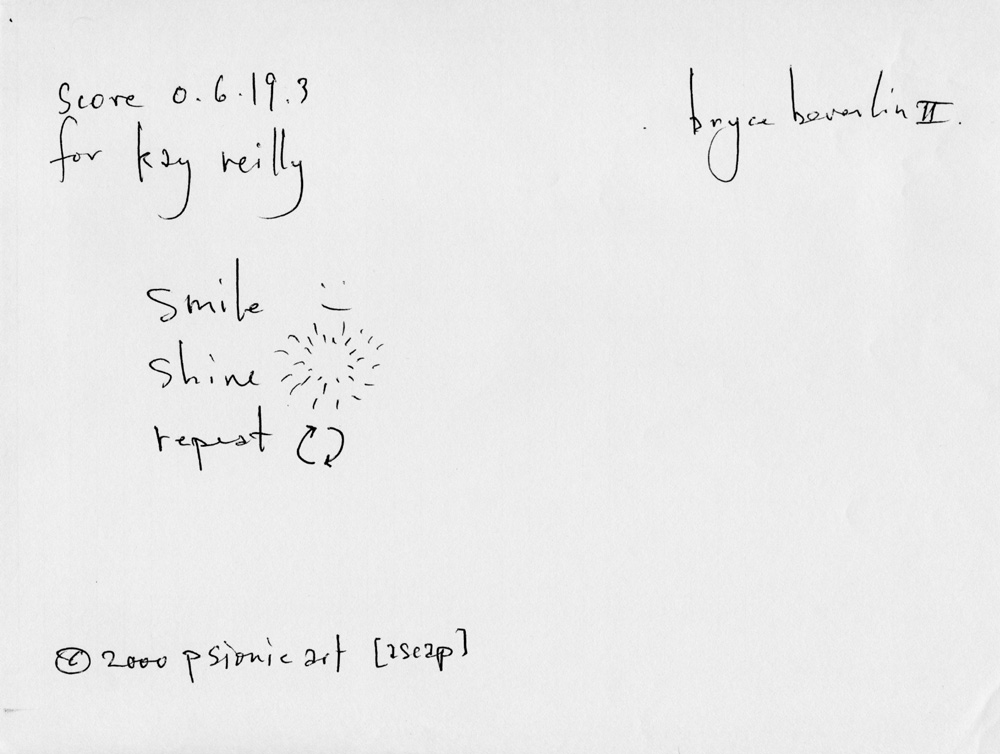 Score 0.6.19.3
for kay reilly
bryce beverlin II.
smile
shine
repeat
© 2000 psionic art [ascap]